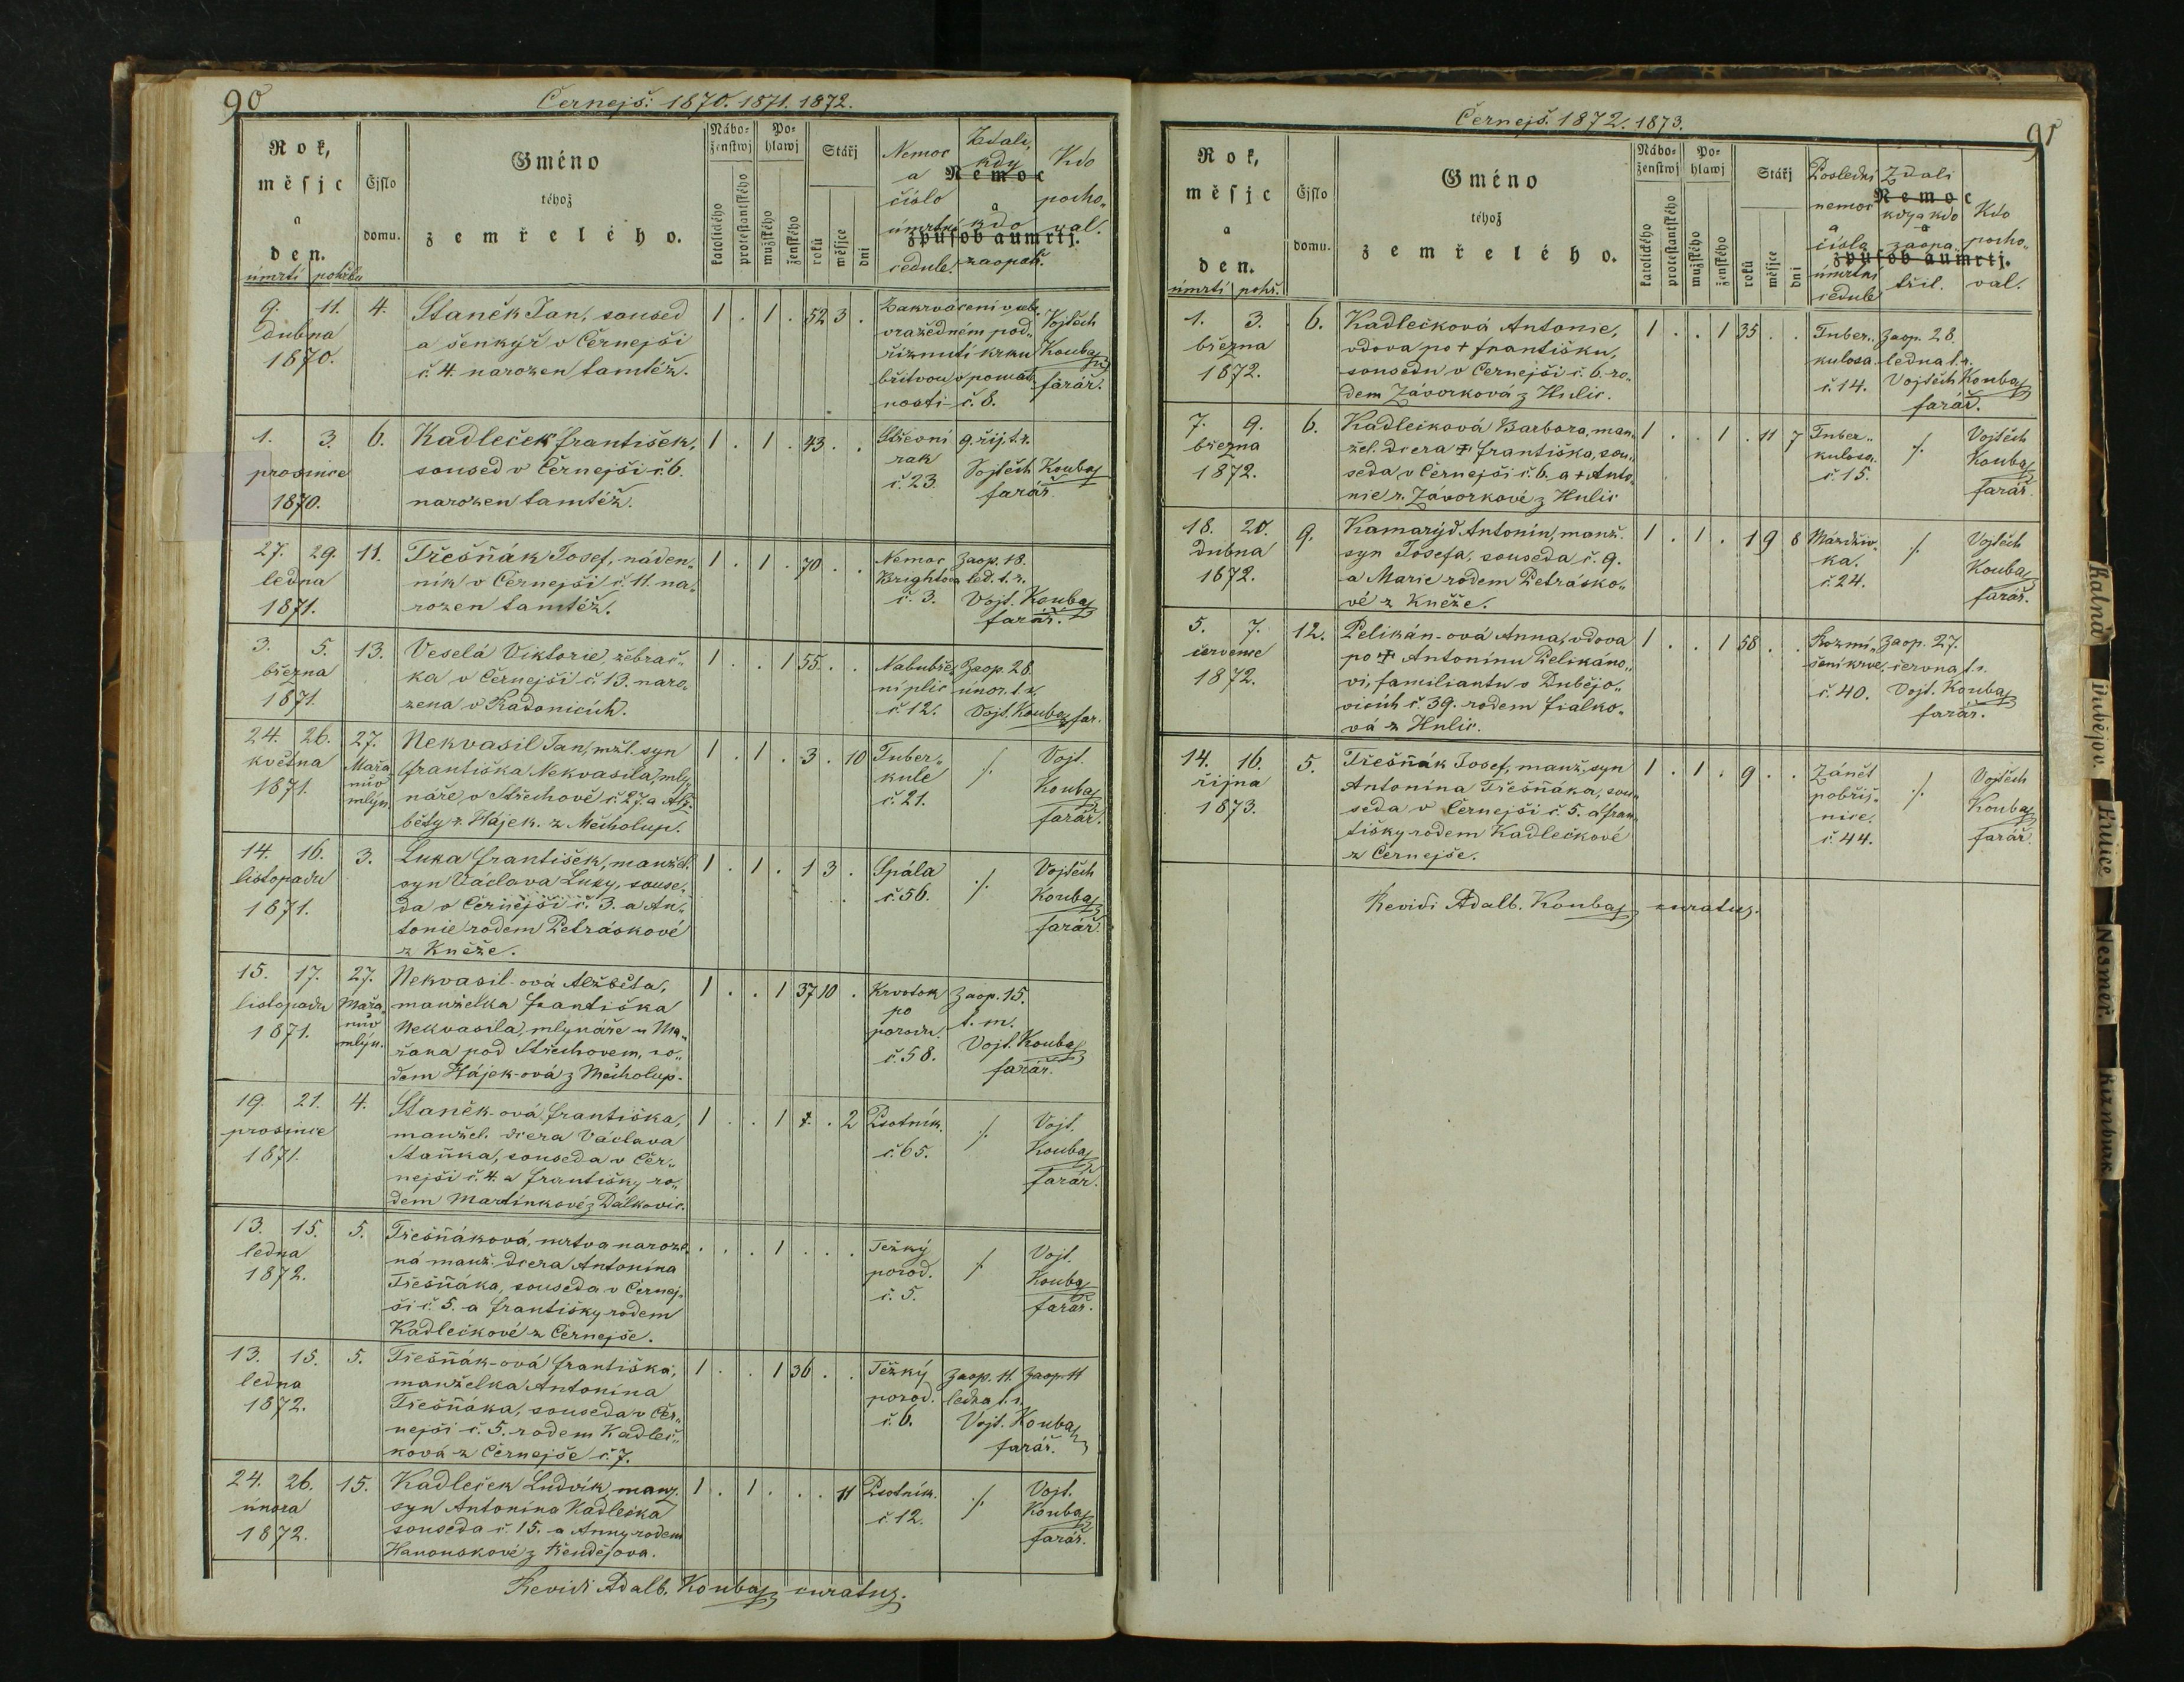 90
Černejš: 1870. 1871. 1872.
Rok, měsjc a den.
úmrtí pohřbu
Čjslo domu.
Gméno
téhož
zemřelého.
Náboženstwj
katolického
protestantského
Pohlawj
mužského
ženského
Stářj
roků
měsjce
dnj
Nemoc a číslo úmrtní cedule.
Nemoc a způsob aumrtj.
Zdali, kdy a kdo zaopatř.
Kdo pochoval.
9. 11. dubna 1870.
4.
Staněk Jan, soused
a šenkýř v Černejši
č. 4. narozen tamtéž.
1 . 1 . 52 3 .
Zakrvácení v seb.
vražedném pod„
říznutí krku
břitvou v pomat.
nosti č. 8.
Vojtěch
Kouba
farář.
1. 3. prosince 1870.
6.
Kadleček František,
soused v Černejši č. 6.
narozen tamtéž.
1 . 1 . 43 . .
Střevní
rak
č. 23.
9. říj. t. r.
Vojtěch Kouba
farář
27. 29. ledna 1871.
11.
Třešňák Josef, náden„
ník v Černejši č. 11. na„
rozen tamtéž.
1 . 1 . 70 . .
Nemoc
Brightova
č. 3.
Zaop. 18.
led. t. r.
Vojt. Kouba
farář.
3. 5. března 1871.
13.
Veselá Viktorie, žebrač„
ka v Černejši č. 13. naro„
zena v Radonicích.
1 . . 1 55 . .
Nabubře„
ní plic
č. 12.
Zaop. 28.
unor. t. r.
Vojt. Kouba far.
24. 26. května 1871.
27.
Mařa„
nův
mlýn
Nekvasil Jan, mžl. syn
Františka Nekvasila, mly„
náře, v Střechově č. 27. a Alž„
běty r. Hájek. z Mečholup.
1 . 1 . 3 . 10
Tuber„
kule
č. 21.
./.
Vojt.
Kouba
farář.
14. 16. listopadu 1871.
3.
Luka František, manžel.
syn Václava Luky, souse„
da v Černejši č. 3. a An„
tonie rodem Petráskové
z Kněže.
1 . 1 . 1 3 .
Spála
č. 56.
./.
Vojtěch
Kouba
farář.
15. 17. listopadu 1871.
27.
Mařa„
nův
mlýn.
Nekvasil-ová Alžběta,
manželka Františka
Nekvasila, mlynáře u Ma„
řana pod Střechovem, ro„
dem Hájek-ová z Mečholup.
1 . . 1 37 10 .
Krvotok
po
porodu.
č. 58.
Zaop. 15.
t. m.
Vojt. Kouba
farář.
19. 21. prosince 1871.
4.
Staněk-ová Františka,
manžel. dcera Václava
Staňka, souseda v Čer„
nejši č. 4. a Františky ro„
dem Martínkové z Dálkovic.
1 . . 1 7. . 2
Psotník.
č. 65.
./.
Vojt.
Kouba
farář.
13. 15. ledna 1872.
5.
Třešňáková, mrtva naroze„
ná manž. dcera Antonína
Třešňáka, souseda v Černej„
ši č. 5. a Františky rodem
Kadlečkové z Černejše.
. . . 1 . . .
Težký
porod.
č. 5.
./.
Vojt.
Kouba
farář.
13. 15. ledna 1872.
5.
Třešňák-ová Františka,
manželka Antonína
Třešňáka, souseda v Čer„
nejši č. 5. rodem Kadleč„
ková z Černejše č. 7.
1 . . 1 36 . .
Težký
porod.
č. 6.
Zaop. 11. Zaop. 11
ledna t. r.
Vojt. Kouba
farář.
24. 26. února 1872.
15.
Kadleček Ludvík, manž.
syn Antonína Kadlečka
souseda č. 15. a Anny rodem
Hanouskové z Řendějova.
1 . 1 . . . 11
Psotník.
č. 12.
./.
Vojt.
Kouba
farář.
Revidi Adalb. Kouba curatus.
91
Černejš. 1872. 1873.
Rok, měsjc a den.
úmrtí pohř.
Čjslo domu.
Gméno
téhož
zemřelého.
Náboženstwj
katolického
protestantského
Pohlawj
mužského
ženského
Stářj
roků
měsjce
dnj
Poslední nemoc a čísla úmrtní cedule
Nemoc a způsob aumrtj.
Zdali kdy a kdo zaopa„třil.
Kdo pochoval.
1. 3. března 1872.
6.
Kadlečková Antonie,
vdova po + Františku,
sousedu v Černejši č. 6. ro„
dem Závorková z Hulic.
1 . . 1 35 . .
Tuber„
kulosa.
č. 14.
Zaop. 28.
ledna t. r.
Vojtěch Kouba
farář.
7. 9. března 1872.
6.
Kadlečková Barbora, man„
žel. dcera + Františka, sou„
seda v Černejši č. 6. a + Anto„
nie r. Závorkové z Hulic
1 . . 1 . 11 7
Tuber„
kulosa.
č. 15.
./.
Vojtěch
Kouba
farář.
18. 20. dubna 1872.
9.
Kamarýd Antonín, manž.
syn Josefa, souseda č. 9.
a Marie rodem Petrásko„
vé z Kněže.
1 . 1 . 1 9 8
Mázdřiv„
ka.
č. 24.
./.
Vojtěch
Kouba
farář.
5. 7. července 1872.
12.
Pelikán-ová Anna, vdova
po + Antonínu Pelikáno„
vi, familiantu v Dubějo„
vicích č. 39. rodem Fialko„
vá z Hulic.
1 . . 1 58 . .
Rozmí„
šení krve.
č. 40.
Zaop. 27.
června t. r.
Vojt. Kouba
farář.
14. 16. října 1873.
5.
Třešňák Josef, manž. syn
Antonína Třešňáka, sou„
seda v Černejši č. 5. a Fran„
tišky rodem Kadlečkové
z Černejše.
1 . 1 . 9 . .
Zánět
pobřiš„
nice.
č. 44.
./.
Vojtěch
Kouba
farář.
Revidi Adalb. Kouba curatus.
Kalná
Dubějov.
Křivce
Nesměř.